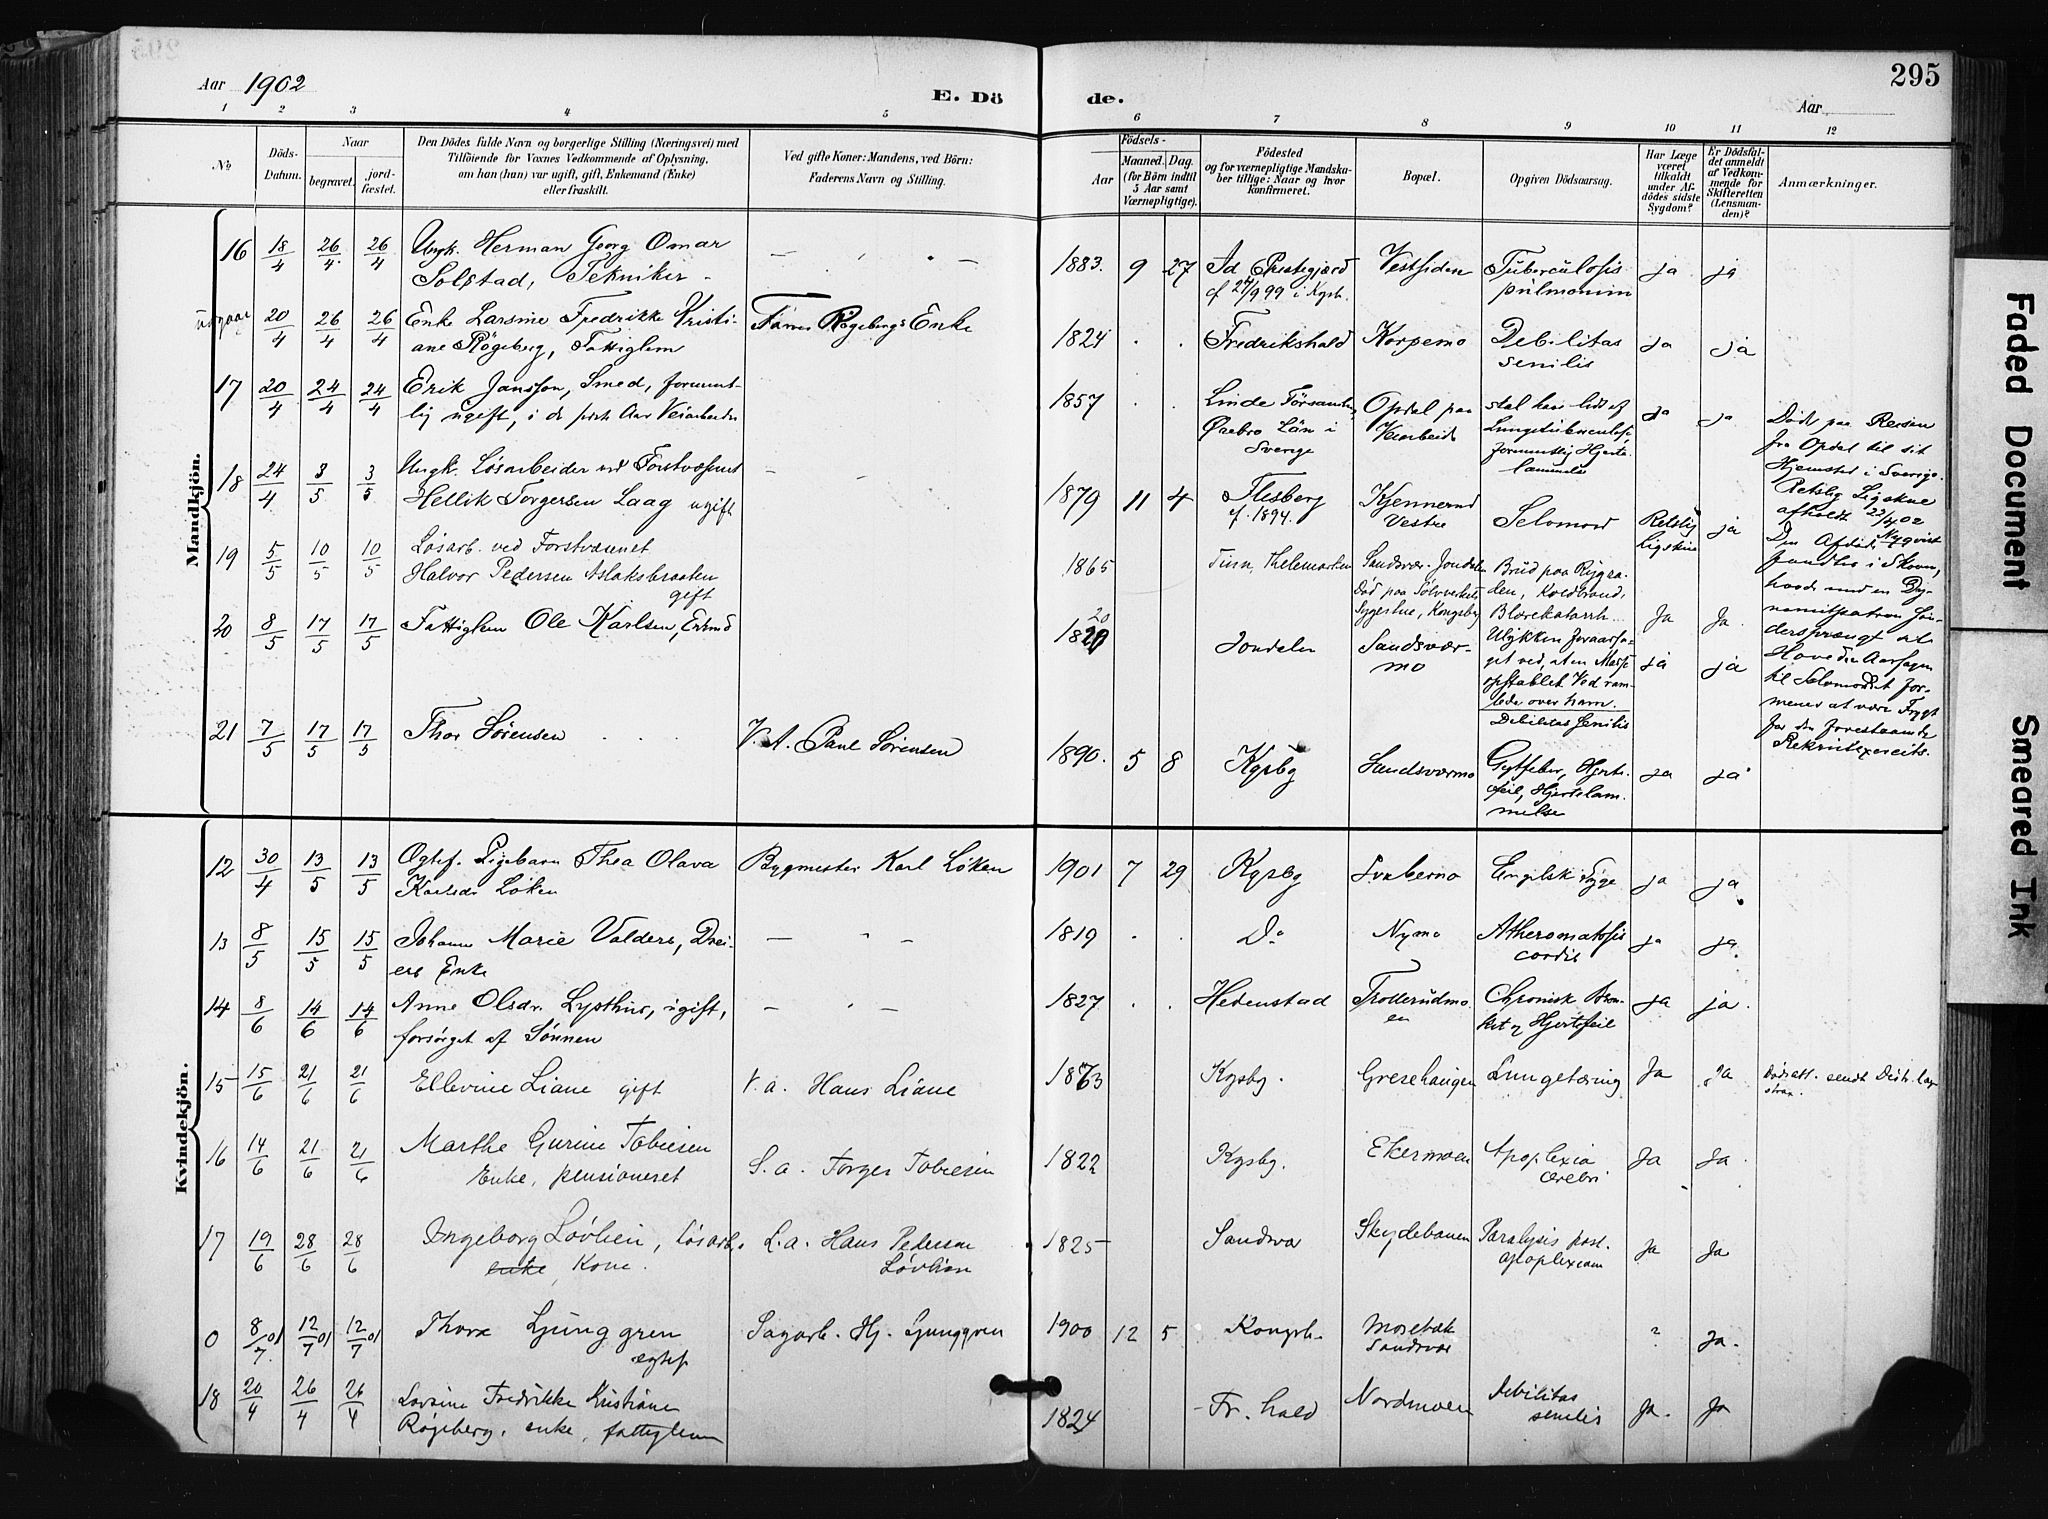 Aar 1902
E. Dö
de.
295
Aar
1 2 3 4 5 6 7 8 9 10 11 12
No
Döds-
Datum.
Naar
begravet.
jord-
fæstet.
Den Dödes fulde Navn og borgerlige Stilling (Næringsvei) med
Tilföiende for Voxnes Vedkommende af Oplysning,
om han (hun) var ugift, gift, Enkemand (Enke)
eller fraskilt.
Ved gifte Koner: Mandens, ved Börn:
Faderens Navn og Stilling.
Födsels-
Aar
Maaned. Dag.
(for Börn indtil
5 Aar samt
Værnepligtige).
Födested
og for værnepligtige Mandska-
ber tillige: Naar og hvor
konfirmeret.
Bopæl.
Opgiven Dödsaarsag.
Har Læge
været
tilkaldt
under Af-
dödes sidste
Sygdom?
Er Dödsfal-
det anmeldt
af Vedkom-
mende for
Skifteretten
(Lensman-
den)?
Anmærkninger.
Mandkjön.
16 18/4 26/4 26/4 Ungk. Herman Georg Omar — " " — 1883. 9 27 Id Prestegjæld Vestsiden Tuberculosis ja ja
Solstad, Tekniker. cf 27/9 99 i Kgsb. pulmonum
udgaar 20/4 26/4 26/4 Enke Larsine Fredrikke Kristi- Røgebergs Enke 1824 . . Fredrikshald Korpemo Debilitas ja ja
ane Røgeberg, Fattiglem senilis
17 20/4 24/4 24/4 Erik Jansson, Smed, forment- 1857 . . Linde Opdal paa skal have lidt af ja ja Død paa Reisen
lig ugift, i de Aar Veiarbeider Ørebro Län i Veiarbeid Lungetuberculose, fra Opdal til sit
Sverige formentlig Hjerte- Hjemsted i Sverige.
lammelse Retslig Ligskue
afholdt 22/4 02
18 24/4 3/5 3/5 Ungk. Løsarbeider ved Forstvæsenet — " — 1879 11 4 Flesberg Kjennerud Selvmord Retslig ja
Hellik Torgersen Laag ugift cf. 1894. Vestre Ligskue
Den Afdøde
fandtes i Skoven,
med en Dy-
namitpatron søn-
dersprængt
Hoved. Aarsagen
til Selvmordet for-
menes at være Frygt
for den forestaaende
Rekrutexercits.
19 5/5 10/5 10/5 Løsarb. ved Forstvæsenet 1865 Tinn, Thelemarken Sandsvær. Jondalen Brud paa Rygra-
Halvor Pedersen Aslaksbraaten Død paa Sølvverkets den, Koldbrand,
gift Sygestue, Kongsberg Blærekatarrh. Ja Ja
20 8/5 17/5 17/5 Fattiglem Ole Karlsen, Enkmd 1820 Jondalen Sandsvær- Ulykken foraarsa- ja ja
mo get ved, at en Masse
opstablet Ved ram-
lede over ham.
Debilitas senilis
21 7/5 17/5 17/5 Thor Sørensen V. A. Paul Sørensen 1890. 5 8 Kgsbg Sandsværmo Gigtfeber, Hjerte- ja ja
feil, Hjertelam-
melse
Kvindekjön.
12 30/4 13/5 13/5 Egtef. Pigebarn Thea Olava Bygmester Karl Løken 1901 7 29 Kgsbg Engelsk Syge ja ja
Karlsdr Løken
13 8/5 15/5 15/5 Johanne Marie Valders, Drei- — " — 1819 . . Do Nymo Atheromatosis ja ja.
ers Enke cordis
14 8/6 14/6 14/6 Anne Olsdr. Lysthus, ugift, — " — 1827 . . Hedenstad Trollerudmo- Chronisk Bron- ja ja.
forsørget af Sønnen en kit og Hjertefeil
15 15/6 21/6 21/6 Ellevine Liane gift V. a. Hans Liane 1863 Kgsby. Gresehaugen Lungetæring Ja Ja Dødsatt. sendt
16 14/6 21/6 21/6 Marthe Gurine Tobiesen S. a. Torger Tobiesen 1822 Kgsby. Ekermoen Apoplexia Ja Ja.
Enke, pensioneret cerebri
17 19/6 28/6 28/6 Ingeborg Løvlien, Løsarb.s L. a. Hans Pedersen 1825 Sandsvær Skydebanen Paralysis post. Ja Ja
enke Kone. Løvlien apoplexiam
0 8/7 01 12/7 01 12/7 01 Thora Ljunggren Sagarb. Hj. Ljunggren 1900 12 5 Kongsb. Mosebæk ? Ja.
egtef Sandsvær
18 20/4 26/4 26/4 Larsine Fredrikke Kristiane 1824 Fr. hald Nordmoen Debilitas Ja. Ja
Røgeberg, enke, fattiglem senilis
Faded Document
Smeared Ink